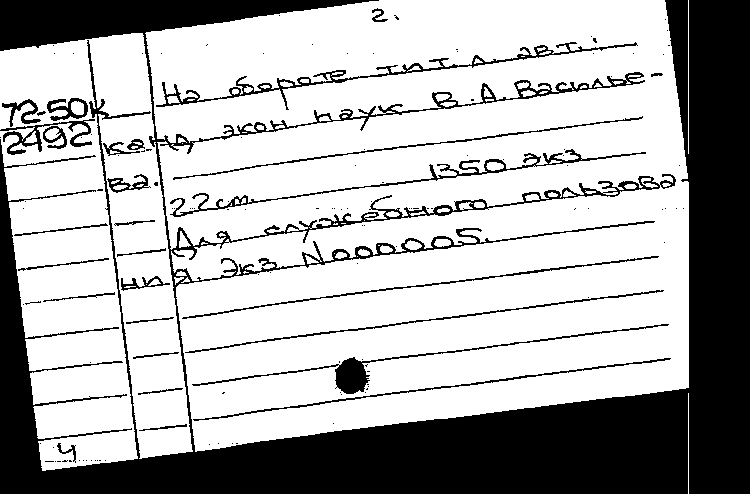 2.
72-50к
2492
На обороте тит. л. авт.:
канд. экон наук В.А. Василье-
ва.
22см. 1350 экз
Для служебного пользова-
ния. Экз N000005.
4